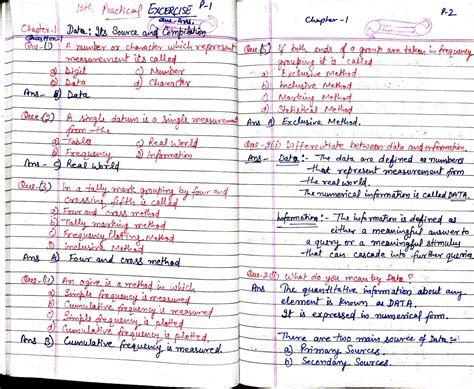 12th Practical EXCERCISE P-1
Ques-Ans.
Chapter-1 Data: Its Source and Compilation
Question-
Que-(1) A number or character which represent
measurement its called
a) Digit c) Number
b) Data d) Character
Ans- B) Data
Que-(2) A single datum is a single measurement
from-the
a) Tables c) Real World
b) Frequency D) Information
Ans- C) Real World
Que-(3) In a tally mark grouping by four and
crossing fifth is called
a) Four and cross method
b) Tally marking method
c) Frequency Plotting Method
D) Inclusive Method
Ans A) Four and cross method
Que-(4) An ogive is a method in which
a) Simple frequency is measured
b) Cumulative frequency is measured
c) Simple frequency is plotted
d) Cumulative frequency is plotted.
Ans B) Cumulative frequency is measured.
Chapter-1 P-2
Que-(5) If both ends of a group are taken in frequency
grouping it is called
a) Exclusive Method
b) Inclusive Method
c) Marking Method
d) Statistical Method
Ans A) Exclusive Method.
Que-2(i) Differentiate between data and information.
Ans- Data:- The data are defined as numbers
that represent measurement form
the real world.
The numerical information is called DATA.
Information:- The information is defined as
either a meaningful answer to
a query or a meaningful stimulus
that can cascade into further queries.
Que-2(ii) What do you mean by Data?
Ans The quantitative information about any
element is known as DATA.
It is expressed in numerical form.
There are two main source of Data:-
a) Primary Sources.
b) Secondary Sources.